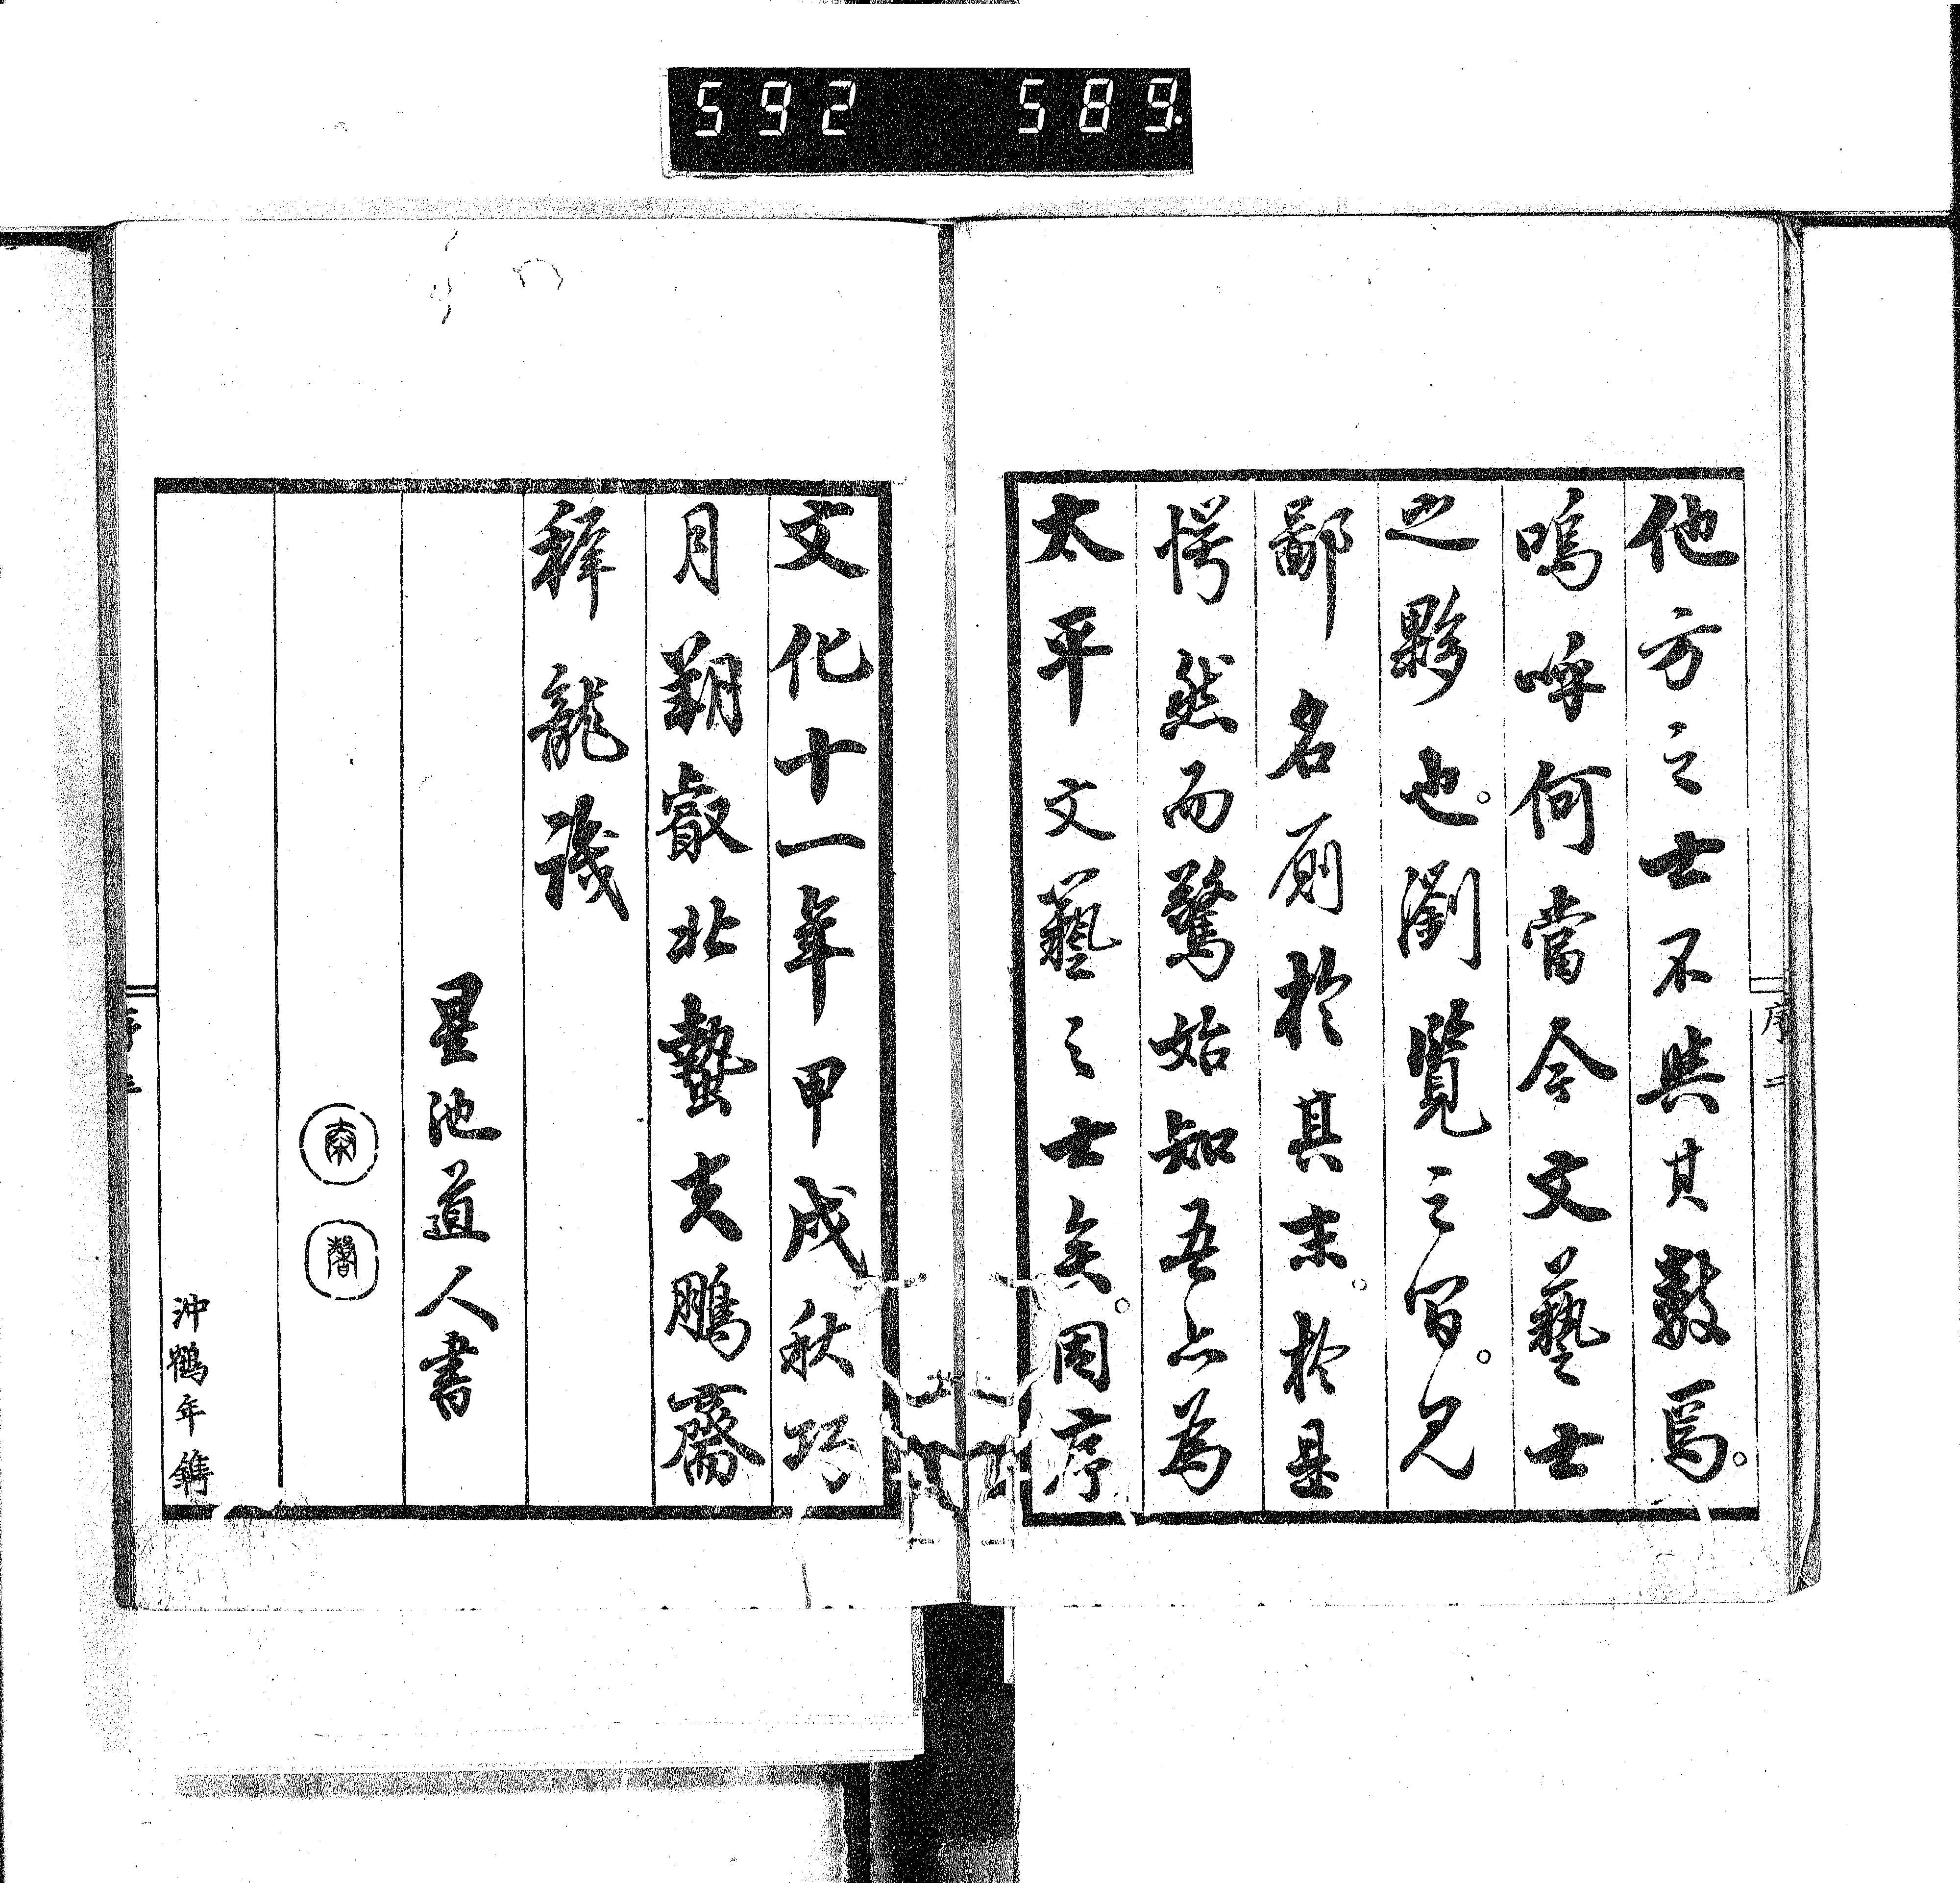 592 589.
序 二
他方之士不與其數焉。
嗚呼何當今文藝士
之夥也。瀏覽之間。見
鄙名廁於其末。於是
愕然而驚始知吾亦為
太平文藝之士矣。因序
文化十一年甲戌秋巧
月朔叡北蟄夫鵬齋
穉龍識
星池道人書
秦
馨
沖鶴年鐫